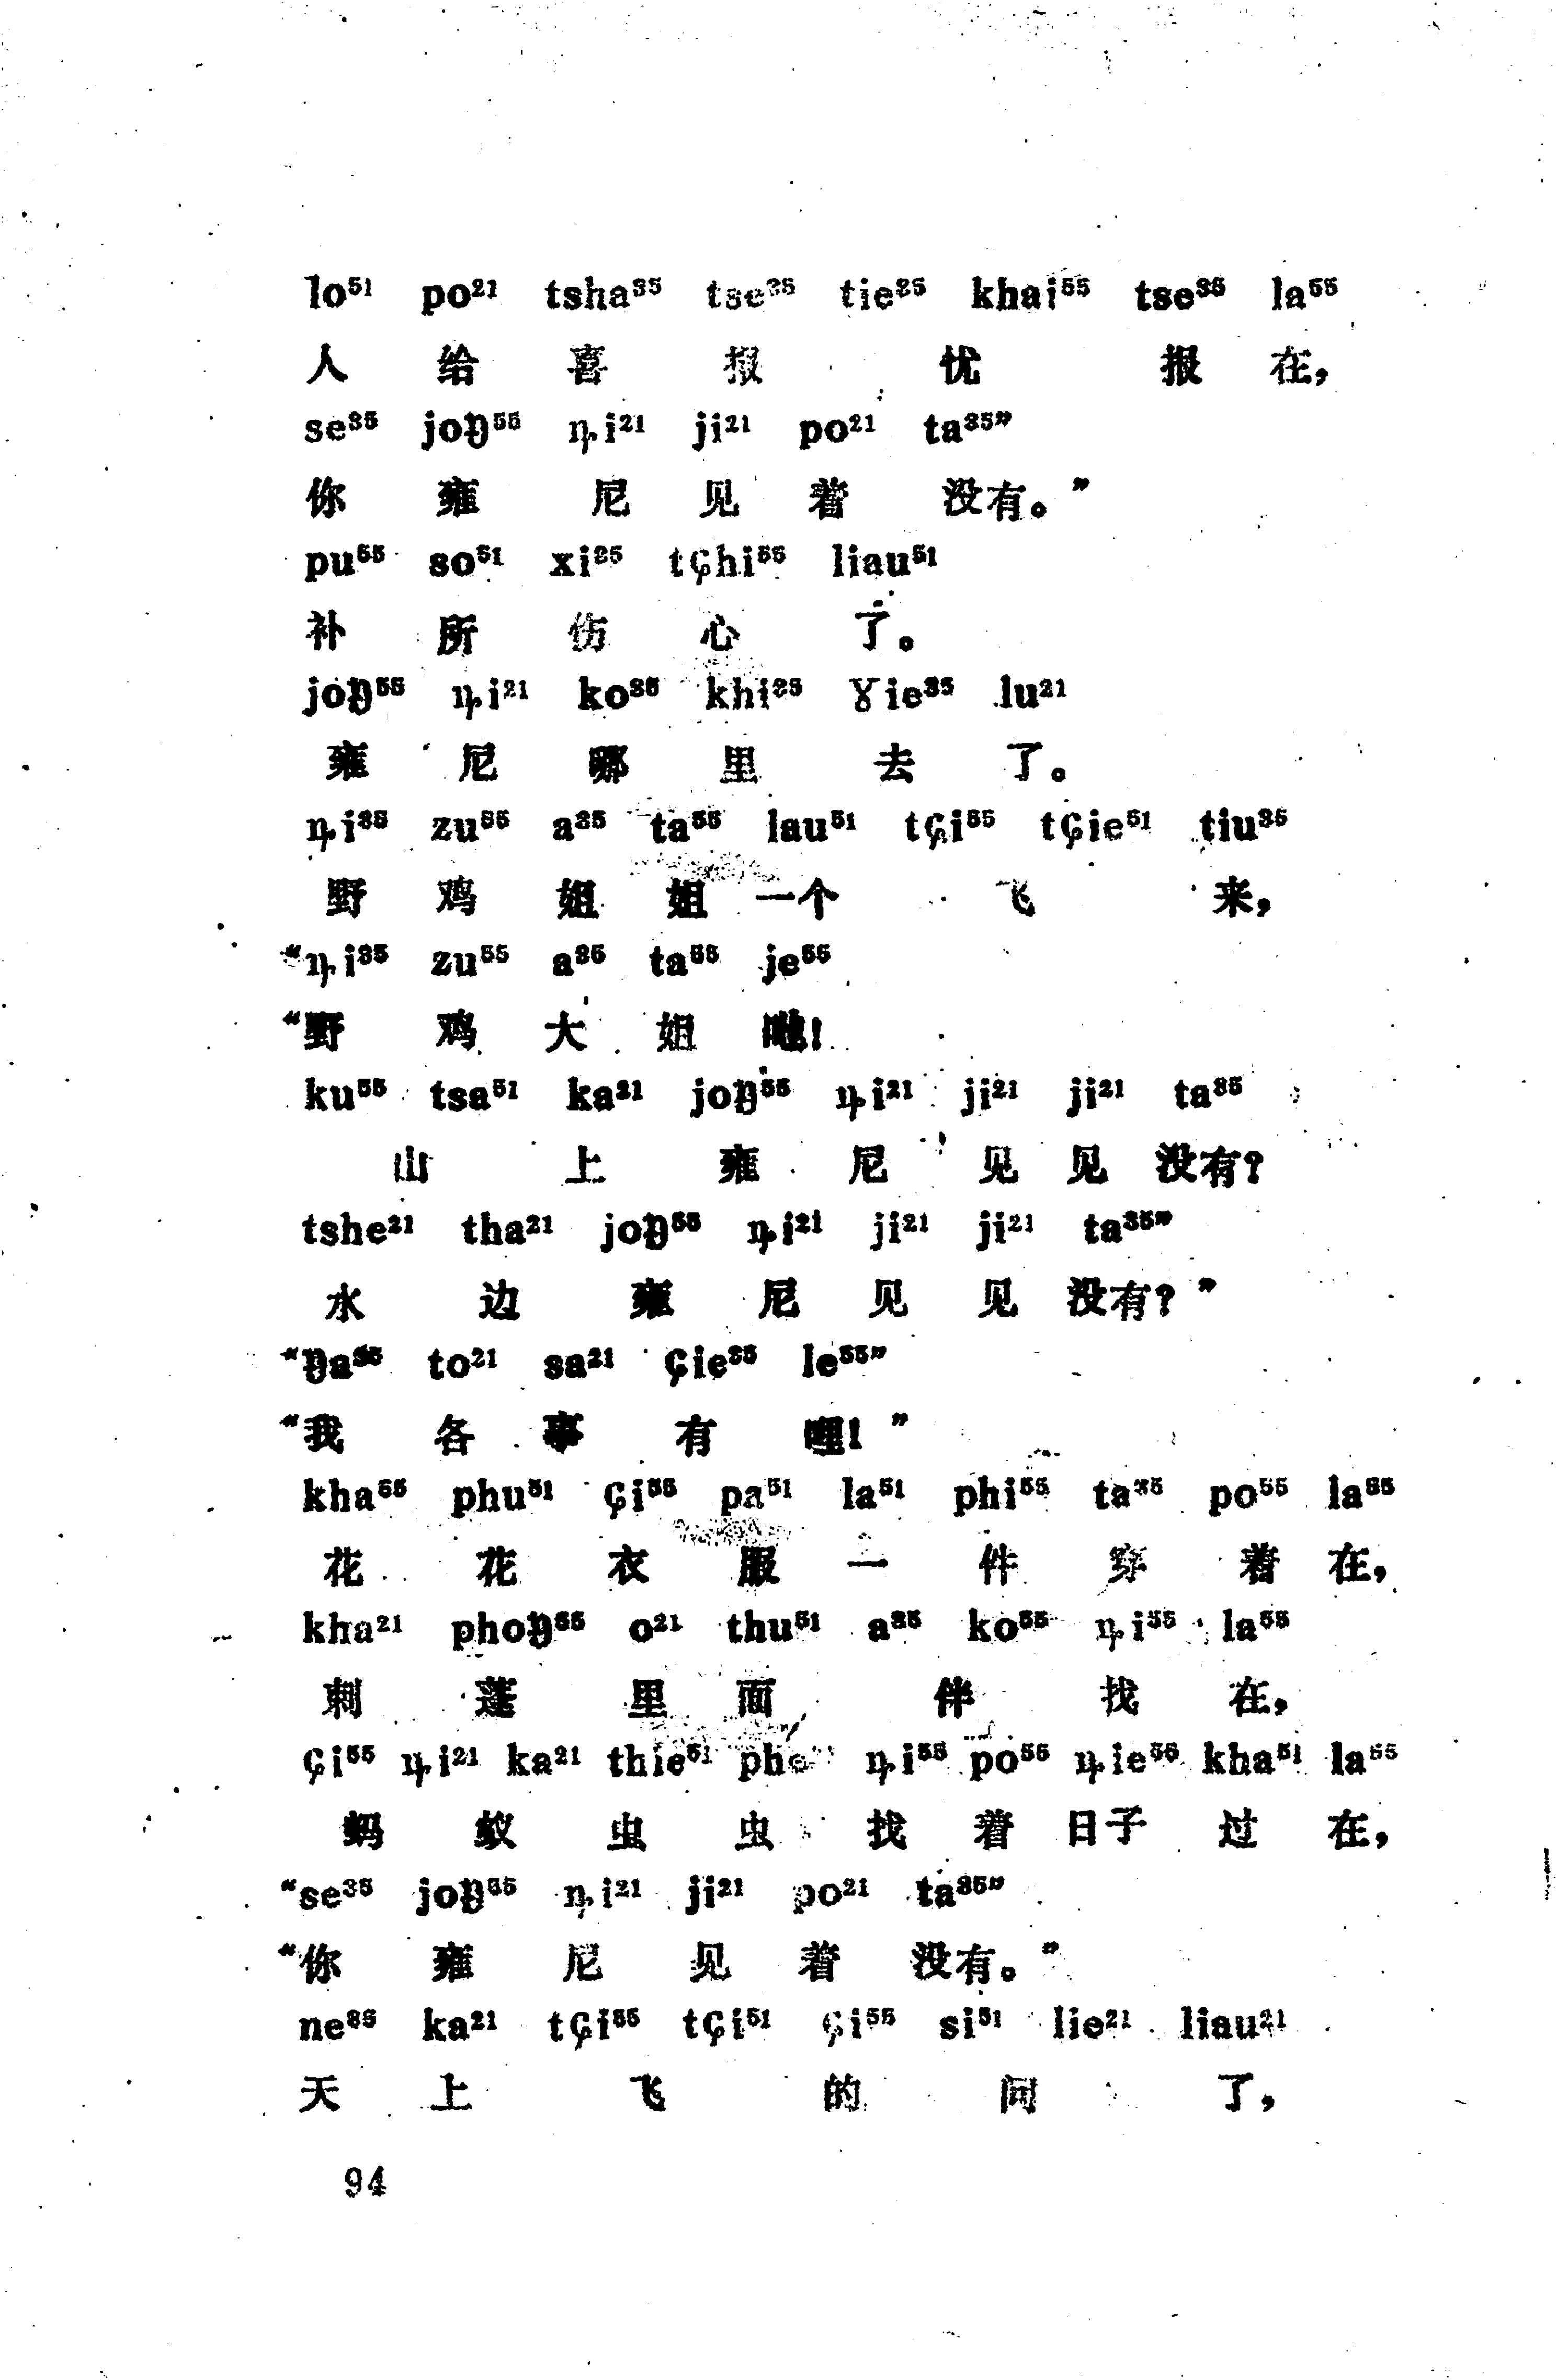 lo⁵¹ po²¹ tsha³⁵ tse³⁵ tie³⁵ khai⁵⁵ tse³⁵ la⁵⁵
人 给 喜 报 忧 报 在，
se³⁵ joŋ⁵⁵ ȵi²¹ ji²¹ po²¹ ta³⁵”
你 雍 尼 见 着 没有。”
pu⁵⁵ so⁵¹ xi³⁵ tɕhi⁵⁵ liau⁵¹
补 所 伤 心 了。
joŋ⁵⁵ ȵi²¹ ko³⁵ khi³⁵ ɣie³⁵ lu²¹
雍 尼 哪 里 去 了。
ȵi³⁵ zu⁵⁵ a³⁵ ta⁵⁵ lau⁵¹ tɕi⁵⁵ tɕie⁵¹ tiu³⁵
野 鸡 姐 姐 一个 飞 来，
“ȵi³⁵ zu⁵⁵ a³⁵ ta⁵⁵ je⁵⁵
“野 鸡 大 姐 吔！
ku⁵⁵ tsa⁵¹ ka²¹ joŋ⁵⁵ ȵi²¹ ji²¹ ji²¹ ta³⁵
山 上 雍 尼 见 见 没有？
tshe²¹ tha²¹ joŋ⁵⁵ ȵi²¹ ji²¹ ji²¹ ta³⁵”
水 边 雍 尼 见 见 没有？”
“ŋa³⁵ to²¹ sa²¹ ɕie³⁵ le⁵⁵”
“我 各 事 有 哩！”
kha⁵⁵ phu⁵¹ ɕi⁵⁵ pa⁵¹ la⁵¹ phi⁵⁵ ta³⁵ po⁵⁵ la⁵⁵
花 花 衣 服 一 件 穿 着 在，
kha²¹ phoŋ⁵⁵ o²¹ thu⁵¹ a³⁵ ko⁵⁵ ȵi⁵⁵ la⁵⁵
刺 蓬 里 面 伴 找 在，
ɕi⁵⁵ ȵi²¹ ka²¹ thie⁵¹ ȵi⁵⁵ po⁵⁵ ȵie⁵⁵ kha⁵¹ la⁵⁵
蚂 蚁 虫 虫 找 着 日子 过 在，
“se³⁵ joŋ⁵⁵ ȵi²¹ ji²¹ po²¹ ta³⁵”
“你 雍 尼 见 着 没有。”
ne³⁵ ka²¹ tɕi⁵⁵ tɕi⁵¹ ɕi⁵⁵ si⁵¹ lie²¹ liau²¹
天 上 飞 的 问 了，
94